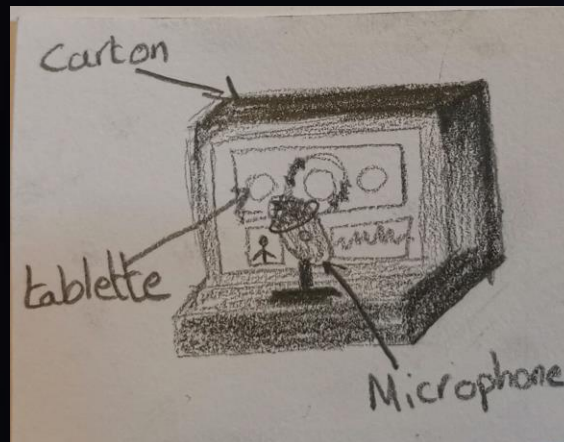 Carton
tablette
Microphone